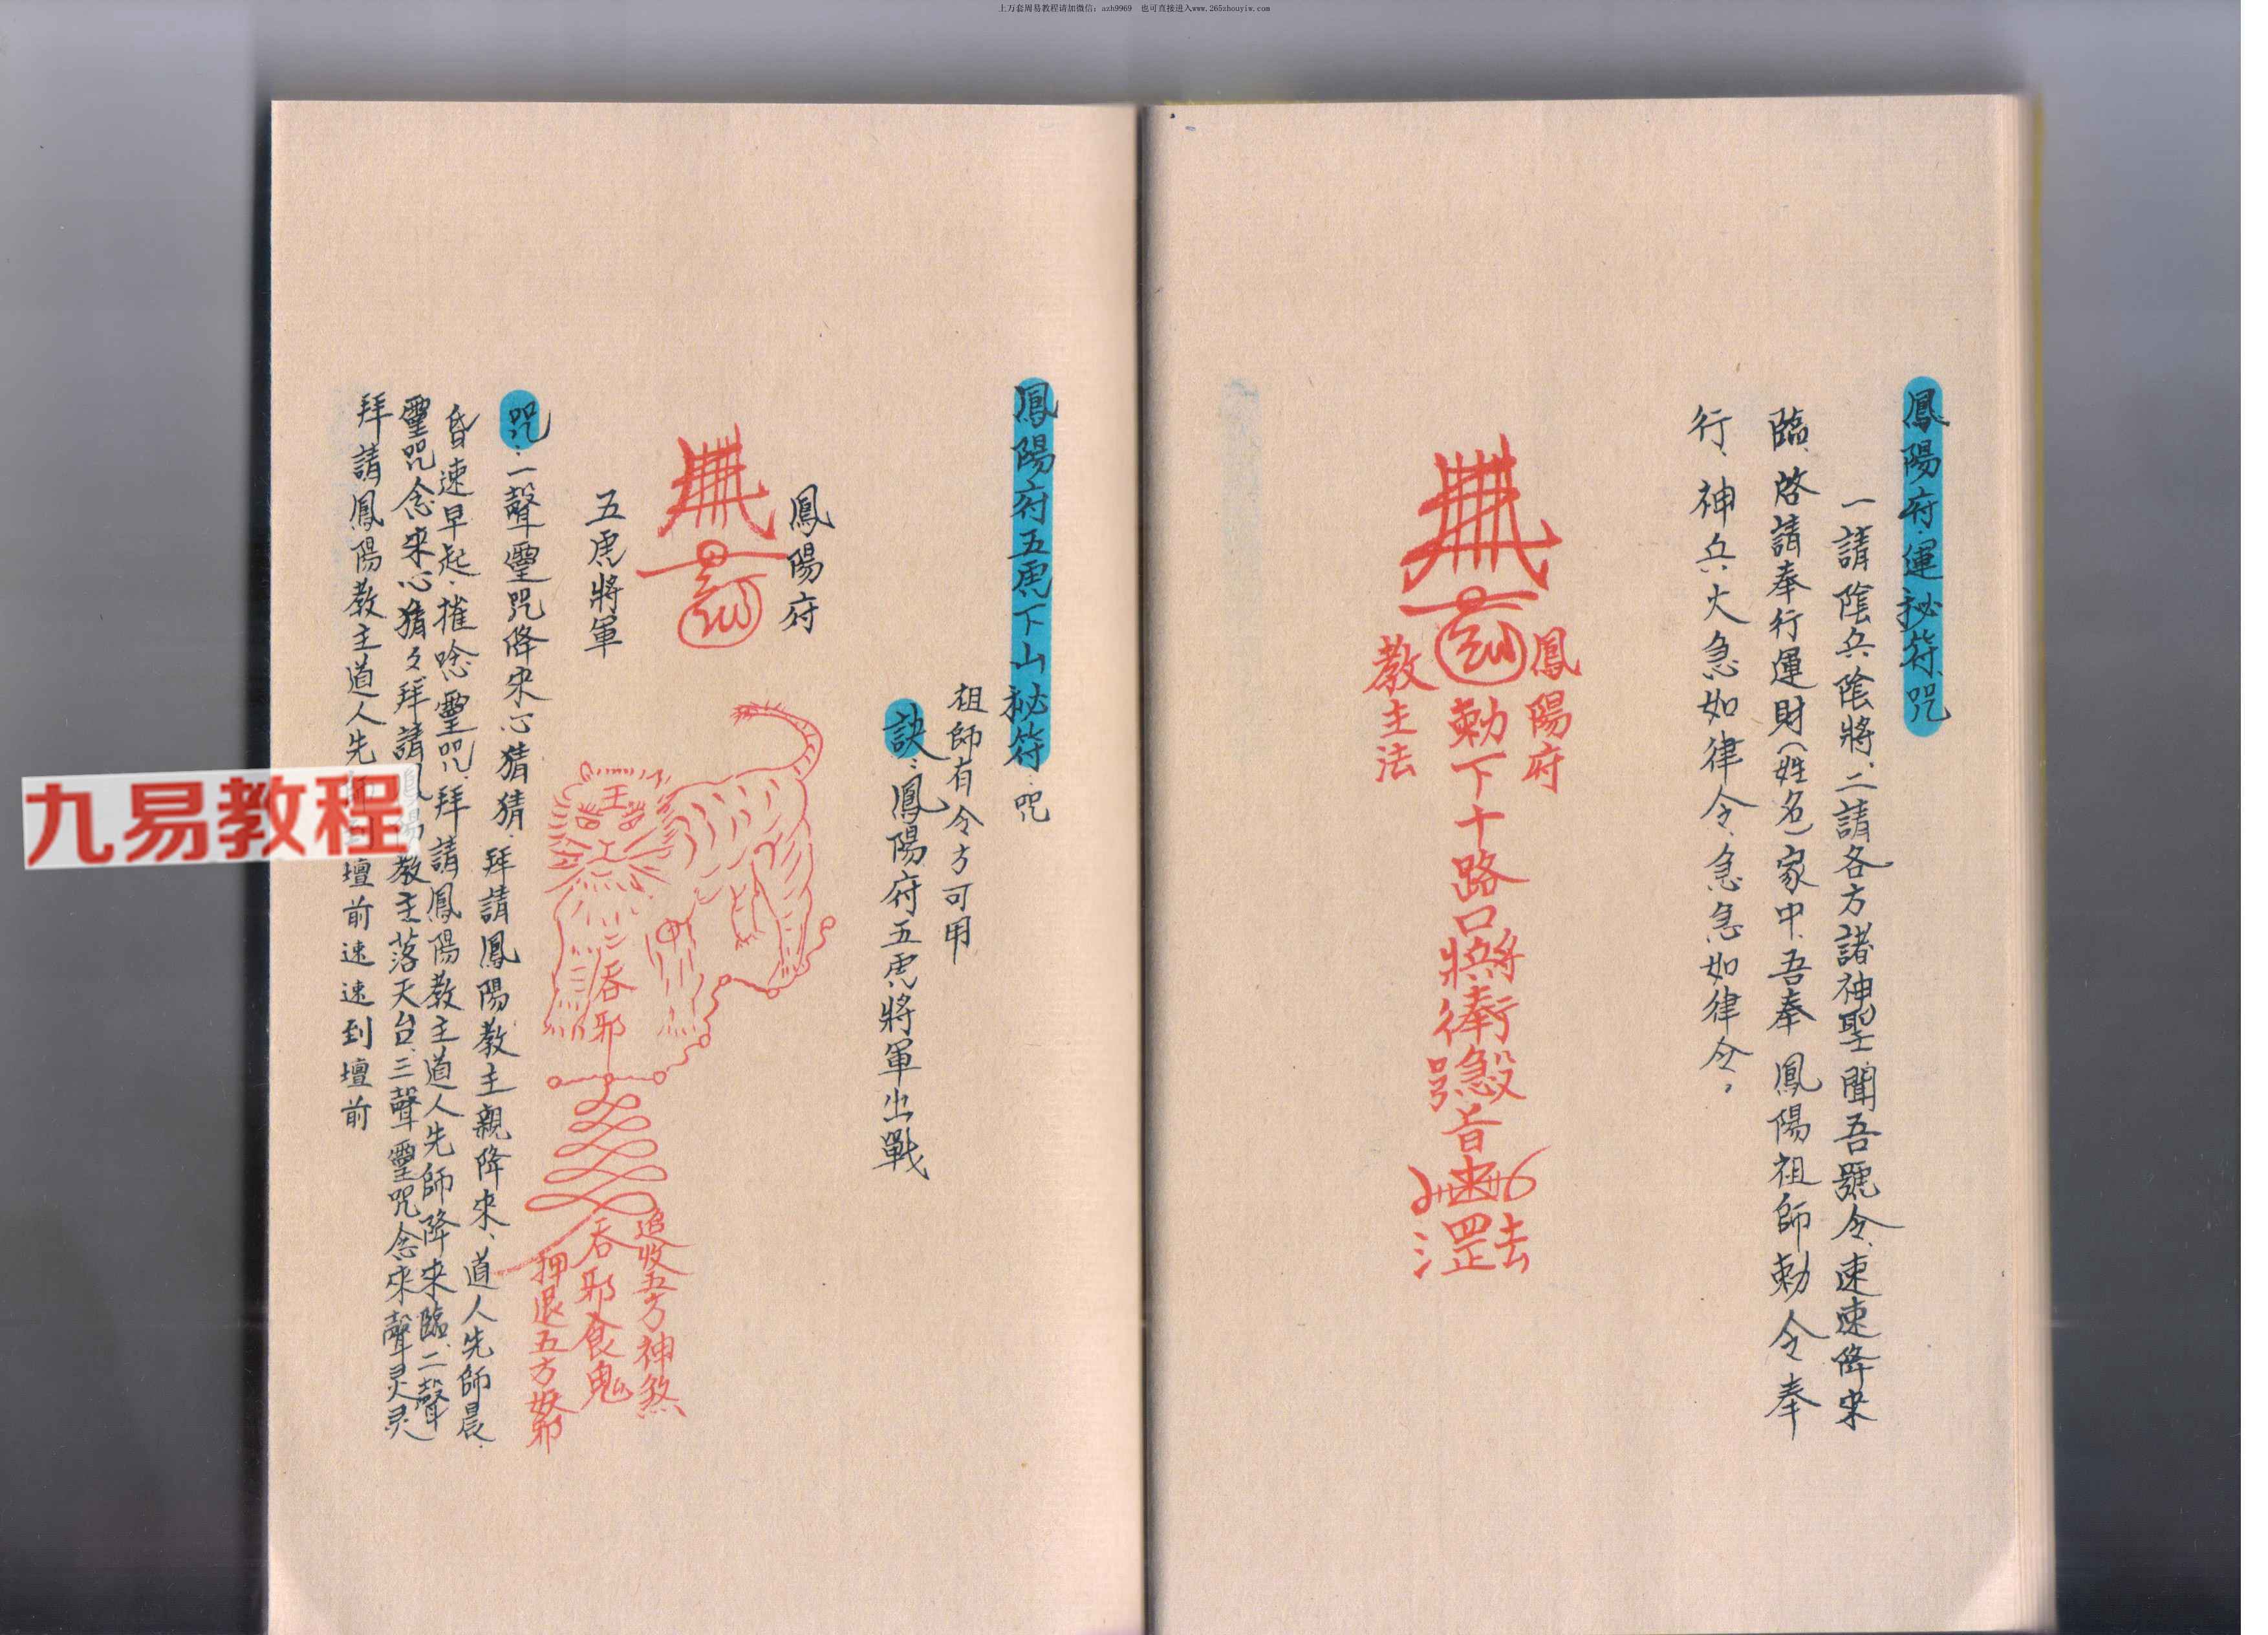 上万套周易教程请加微信：azh9969 也可直接进入www.265zhouyiw.com
鳳陽府運秘符咒
一請陰兵陰將、二請各方諸神聖、聞吾號令、速速降來
臨、啓請奉行運財（姓名）家中、吾奉 鳳陽祖師勅令奉
行、神兵火急如律令、急急如律令，
鳳陽府
勅下十路口
教主法
鳳陽府五虎下山秘符：咒
祖師有令方可用
訣：鳳陽府五虎將軍出戰
鳳陽府
五虎將軍
王
吞邪
追收五方神煞
吞邪食鬼
押退五方
咒：一聲靈咒降來心猜猜、拜請鳳陽教主親降來、道人先師晨、
昏速早起、摧唸靈咒、拜請鳳陽教主道人先師降來臨、二聲
靈咒念來心猜々拜請鳳陽教主落天台、三聲靈咒念來聲灵灵
拜請鳳陽教主道人先師到壇前速速到壇前
九易教程